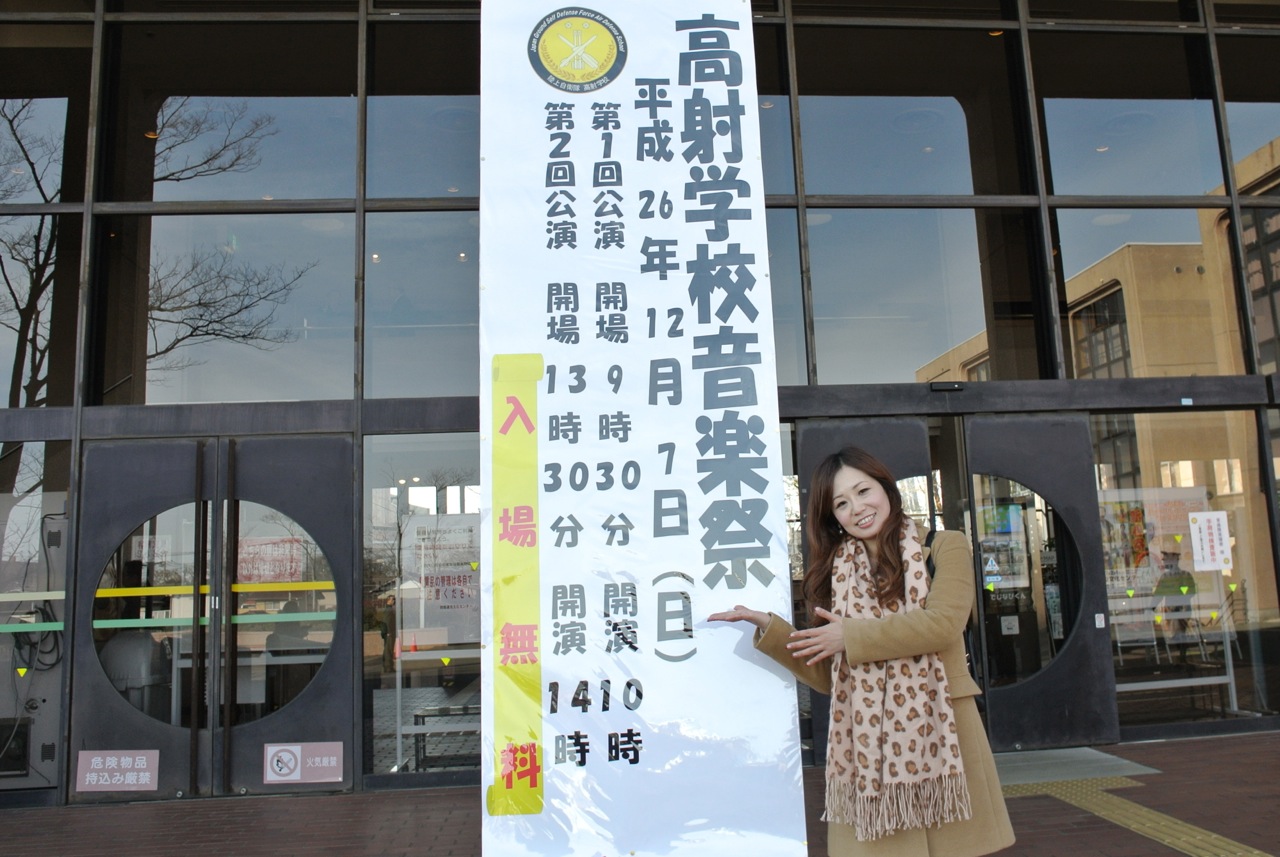 高射学校音楽祭
平成26年12月7日(日)
第1回公演 開場9時30分 開演10時
第2回公演 開場13時30分 開演14時
入場無料
Japan Ground Self Defense Force Air Defense School
陸上自衛隊 高射学校
危険物品
持込み厳禁
火気厳禁